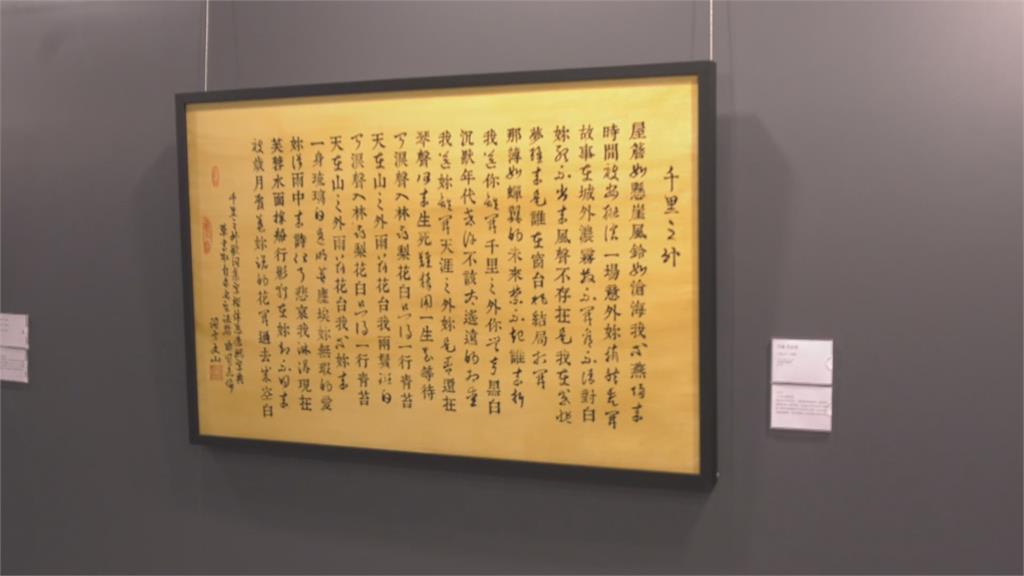 千里之外
屋簷如懸崖風鈴如滄海我等燕歸來
時間被安排演一場意外妳悄然走開
故事在城外濃霧散不開看不清對白
妳聽不出來風聲不存在是我在感慨
夢醒來是誰在窗台把結局打開
那薄如蟬翼的未來禁不起誰來拆
我送你離開千里之外你無聲黑白
沉默年代或許不該太遙遠的相愛
我送妳離開天涯之外妳是否還在
琴聲何來生死難猜用一生去等待
聞淚聲入林尋梨花白只得一行青苔
天在山之外雨落花台我兩鬢斑白
聞淚聲入林尋梨花白只得一行青苔
天在山之外雨落花台我等妳來
一身琉璃白透明著塵埃妳無瑕的愛
妳從雨中來詩化了悲哀我淋濕現在
芙蓉水面採船行影猶在妳卻不回來
被歲月覆蓋妳說的花開過去成空白
千里之外
文山